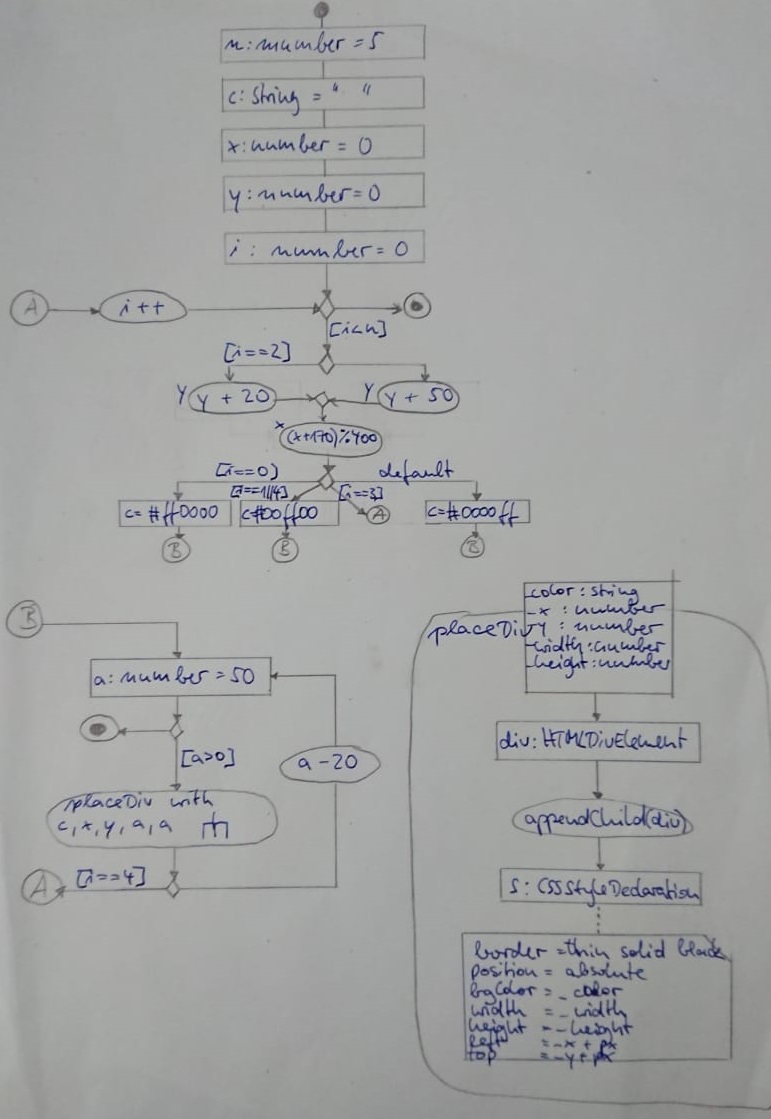 n: number = 5
c: String = " "
x: number = 0
y: number = 0
i : number = 0
A
i++
[i<n]
[i==2]
y y + 20
y y + 50
x (x+170)%400
[i==0]
default
[i==1||4]
[i==3]
c= #ff0000
c#00ff00
A
c=#0000ff
B
B
B
B
a: number = 50
[a>0]
a - 20
placeDiv with
c, x, y, a, a
A
[i==4]
placeDiv
_color : string
_x : number
_y : number
_width : number
_height : number
div: HTMLDivElement
appendChild(div)
s: CSSStyleDeclaration
border = thin solid black
position = absolute
bgColor = _color
width = _width
height = _height
left = _x + px
top = _y + px